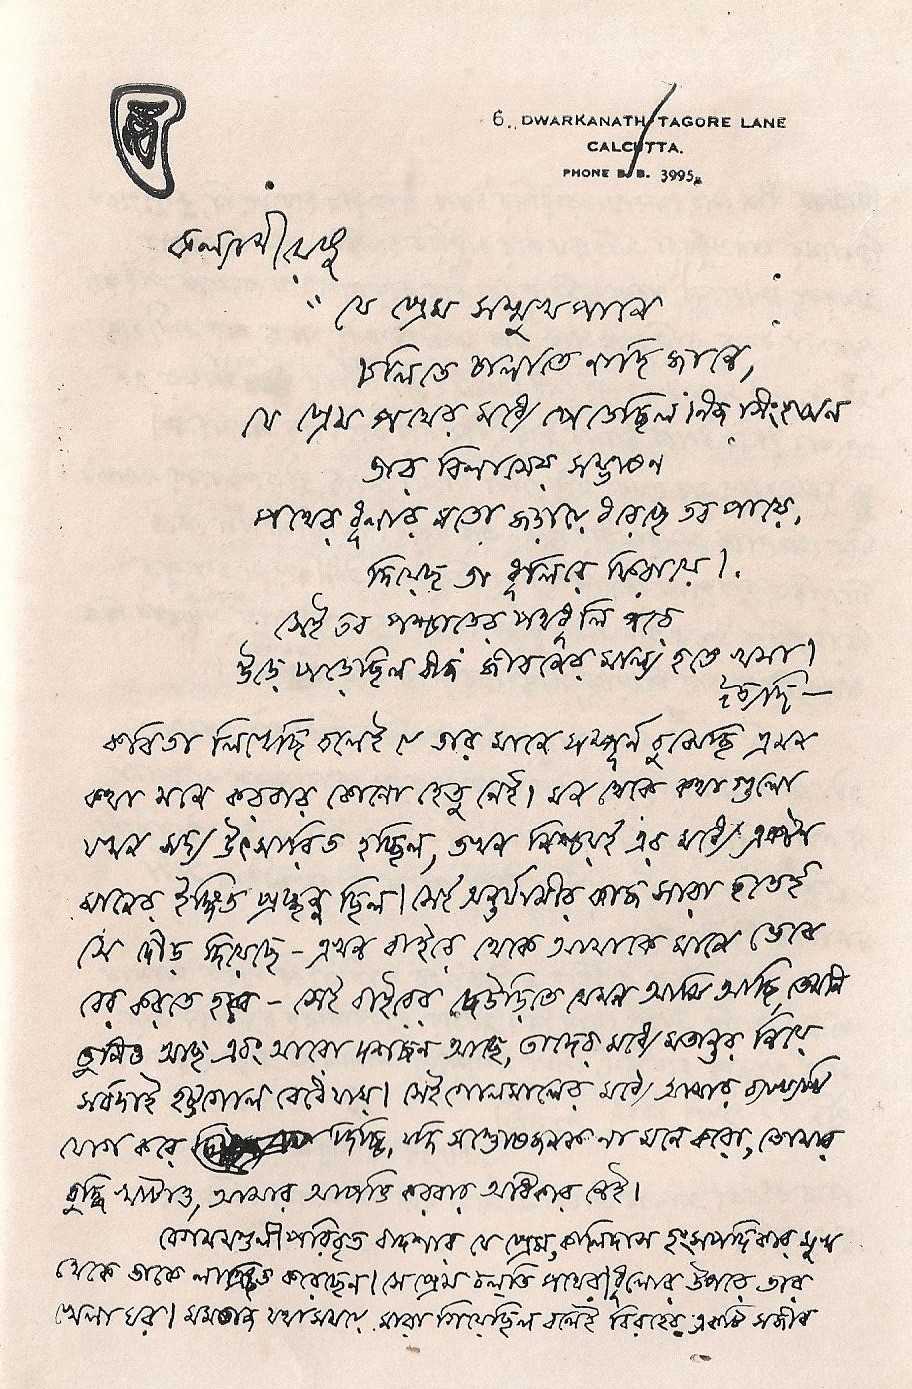 6, DWARKANATH TAGORE LANE
CALCUTTA.
PHONE B. B. 3995
কল্যাণীয়েষু
"যে প্রেম সম্মুখপানে
চলিতে চালাতে নাহি জানে,
যে প্রেম পথের মধ্যে পেতেছিল নিজ সিংহাসন
তার বিলাসের সম্ভাষণ
পথের ধূলার মতো জড়ায়ে ধরেছে তব পায়ে,
দিয়েছ তা ধূলিরে ফিরায়ে।
সেই তব পশ্চাতের পথধূলি পরে
উড়ে পড়েছিল বীজ জীবনের মাল্য হতে খসা।
ইত্যাদি—
কবিতা লিখেছি বলেই যে তার মানে সম্পূর্ণ বুঝেছি এমন
কথা মনে করবার কোনো হেতু নেই। মন থেকে কথাগুলো
যখন সদ্য উৎসারিত হচ্ছিল, তখন নিশ্চয়ই এর মধ্যে একটা
মানের ইঙ্গিত প্রচ্ছন্ন ছিল। সেই অন্তর্যামীর কাজ সারা হতেই
সে দৌড় দিয়েছে - এখন বাইরে থেকে আমাকে মানে ভেবে
বের করতে হবে - সেই বাইরের দেউড়িতে যেমন আমি আছি, তেমনি
তুমিও আছ এবং আরো দশজন আছে, তাদের মধ্যে মতান্তর নিয়ে
সর্বদাই হট্টগোল বেধে যায়। সেই গোলমালের মধ্যে আমার ব্যাখ্যাটি
যোগ করে দিচ্ছি, যদি সন্তোষজনক না মনে করো, তোমার
বুদ্ধি খাটাও, আমার আপত্তি করবার অধিকার নেই।
বেগমমণ্ডলীপরিবৃত বাদশার যে প্রেম, কালিদাস হংসপদিকার মুখ
থেকে তাকে লাঞ্ছিত করেছেন। সে প্রেম চল্‌তি পথের। ধূলোর উপরে তার
খেলাঘর। মমতাজ যথাসময়ে মারা গিয়েছিল বলেই বিরহের একটি সজীব